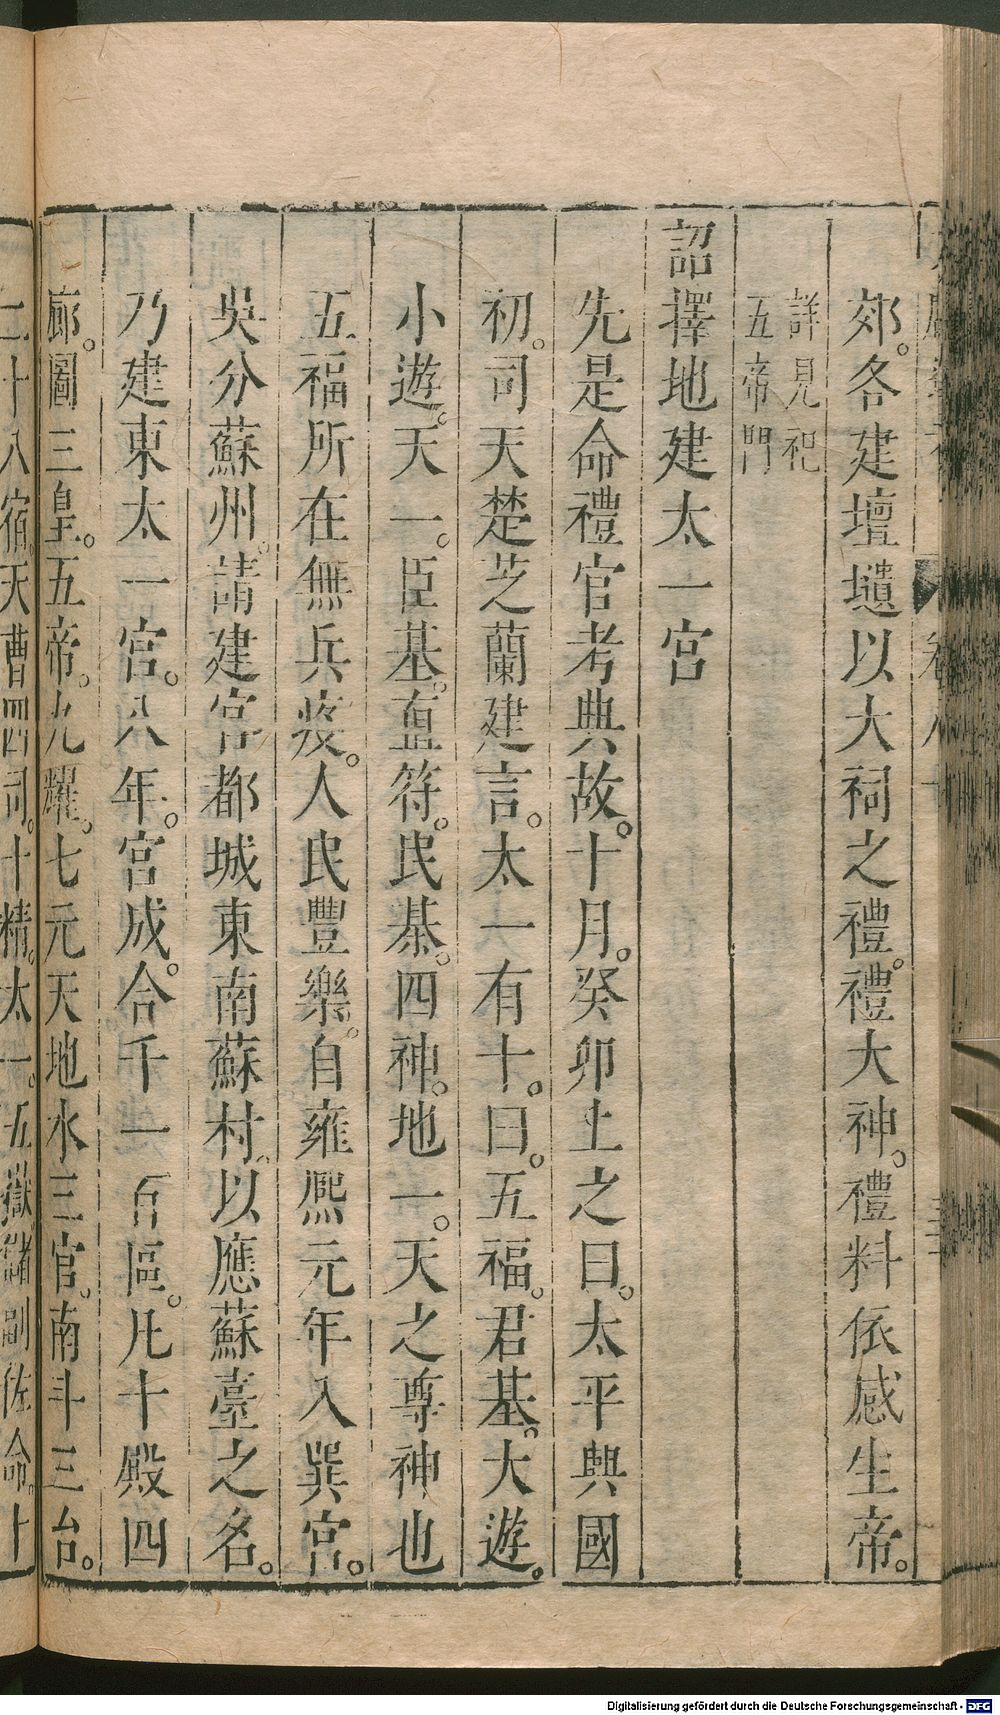 郊。各建壇壝以大祠之禮。禮大神。禮料依感生帝。
詳見祀
五帝門
詔擇地建太一宮
先是命禮官考典故。十月。癸卯上之曰。太平興國
初。司天楚芝蘭建言。太一有十。曰。五福。君基。大遊。
小遊。天一。臣基。直符。民綦。四神。地一。天之尊神也
五福所在無兵疫。人民豐樂。自雍熙元年入巽宮。
吳分蘇州。請建宮都城東南蘇村。以應蘇臺之名。
乃建東太一宮。八年。宮成。合千一百區。凡十殿四
廊。圖三皇。五帝。九耀。七元天地水三官。南斗三台。
二十八宿。天曹四司。十精。太一。五嶽儲副佐命。十
Digitalisierung gefördert durch die Deutsche Forschungsgemeinschaft - DFG